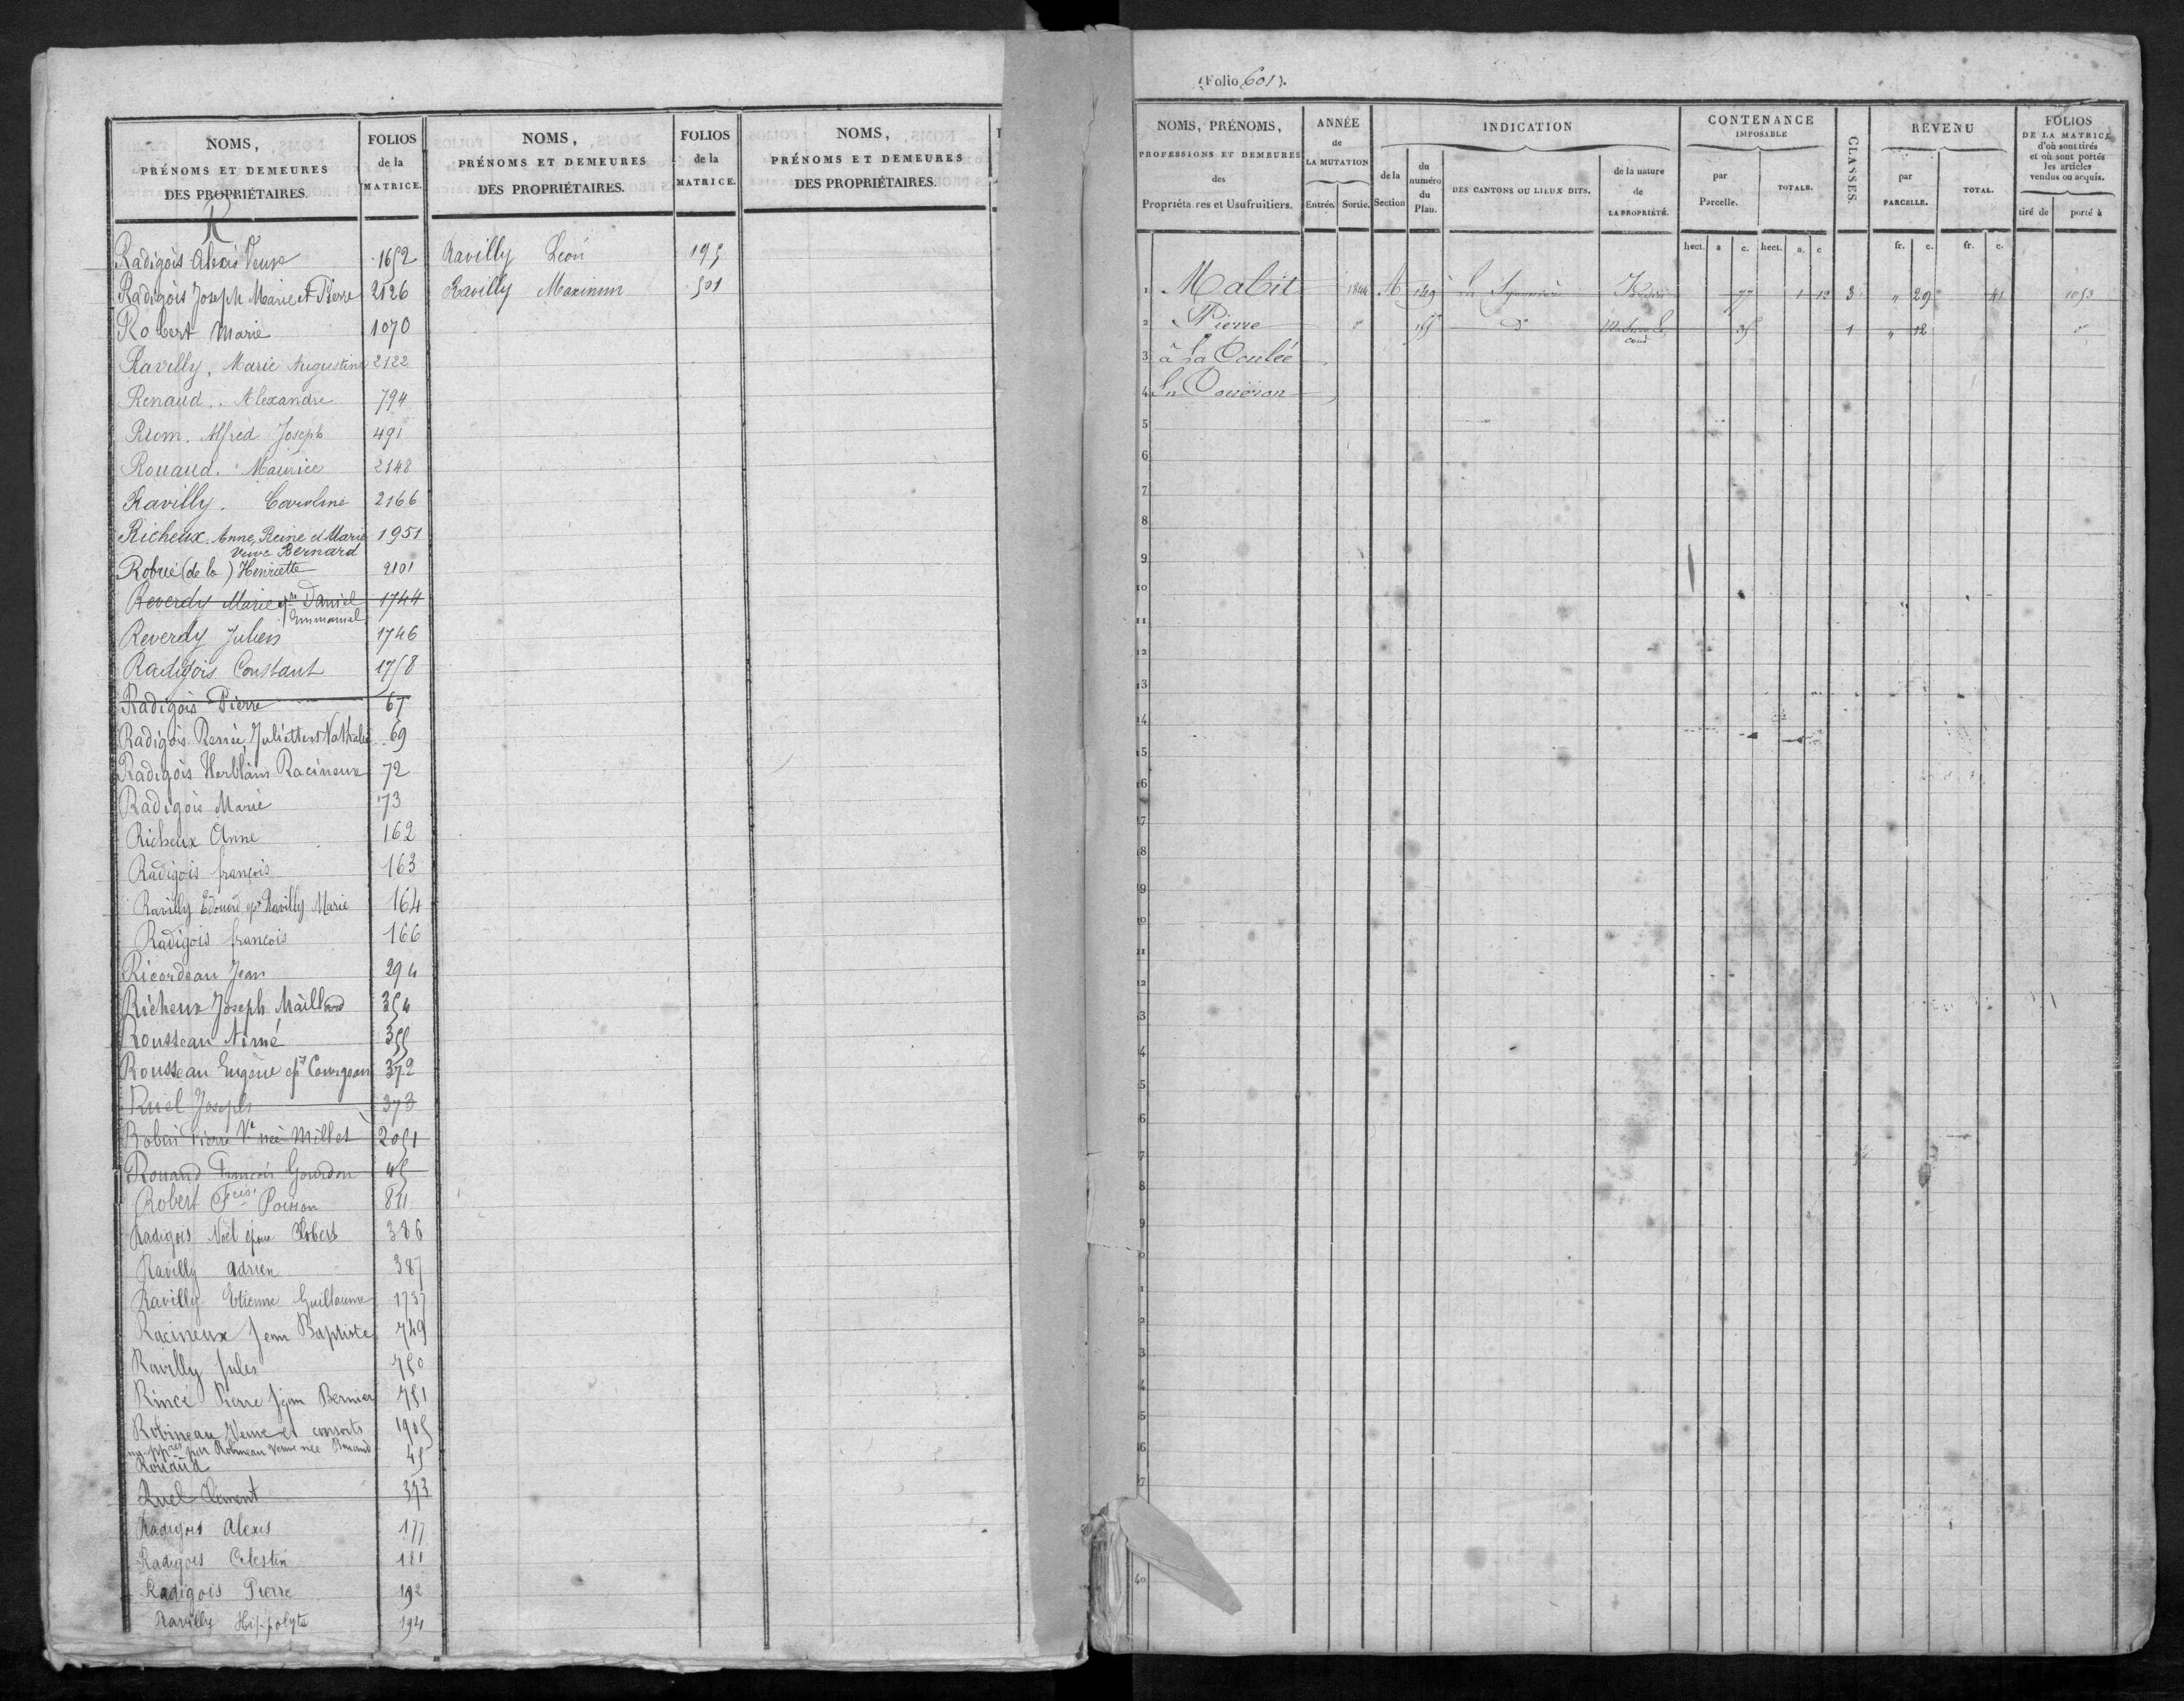 NOMS,
PRÉNOMS ET DEMEURES
DES PROPRIÉTAIRES.
FOLIOS
de la
MATRICE.
R
Radigois Alexis Veuve 1652
Radigois Joseph Marie et Pierre 2126
Robert Marie 1070
Ravilly, Marie Augustine 2122
Renaud. Alexandre 794
Riom. Alfred Joseph 491
Rouaud. Maurice 2148
Ravilly. Caroline 2166
Richeux. Anne, Reine et Marie 1951
veuve Bernard
(de la) Henriette 2101
Reverdy Marie Daniel 1744
Emmanuel
Reverdy Julien 1746
Radigois Constant 1758
Radigois Pierre 67
Radigois Renée, Juliette et Nathalie 69
Radigois Herblain Racineux 72
Radigois Marie 73
Richeux Anne 162
Radigois françois 163
Ravilly Edouard ép. Ravilly Marie 164
Radigois françois 166
Ricordeau Jean 294
Richeux Joseph Maillard 354
Rousseau Aimé 355
Rousseau Eugène ép. Courgeon 372
Ruel Joseph 373
Robin Pierre Ve née Millet 2051
Rouaud François Gourdon 45
Robert Fcois. Poisson 821
Radigois Noël épou Robert 386
Ravilly Adrien 387
Ravilly Etienne Guillaume 1737
Racineux Jean Baptiste 749
Ravilly Jules 750
Rincé Pierre Jean Bernier 751
Robineau Veuve et consorts 1905
par Robineau veuve née
Rouaud 45
Ruel Clément 373
Radigois Alexis 177
Radigois Celestin 181
Radigois Pierre 192
Ravilly Hippolyte 194
NOMS,
PRÉNOMS ET DEMEURES
DES PROPRIÉTAIRES.
FOLIOS
de la
MATRICE.
Ravilly Léon 195
Ravilly Maximin 501
NOMS,
PRÉNOMS ET DEMEURES
DES PROPRIÉTAIRES.
(Folio 601).
NOMS, PRÉNOMS,
PROFESSIONS ET DEMEURES
des
Propriétaires et Usufruitiers.
ANNÉE
de
LA MUTATION
Entrée. Sortie.
INDICATION
de la
Section
du
numéro
du
Plan.
DES CANTONS OU LIEUX DITS.
de la nature
de
LA PROPRIÉTÉ.
CONTENANCE
IMPOSABLE
par
Parcelle.
TOTALE.
CLASSES.
REVENU
par
PARCELLE.
TOTAL.
FOLIOS
DE LA MATRICE
d'où sont tirés
et où sont portés
les articles
vendus ou acquis.
tiré de porté à
hect. a c. hect. a. c fr. c. fr. c.
1 Mabit 1844 M 149 77 1 12 3 " 29 41 1053
2 Pierre 155 do 35 1 " 12
3 à la Coulée
4 En Couëron
5
6
7
8
9
10
11
12
13
14
15
16
17
18
19
20
21
22
23
24
25
26
27
28
29
30
31
32
33
34
35
36
37
40